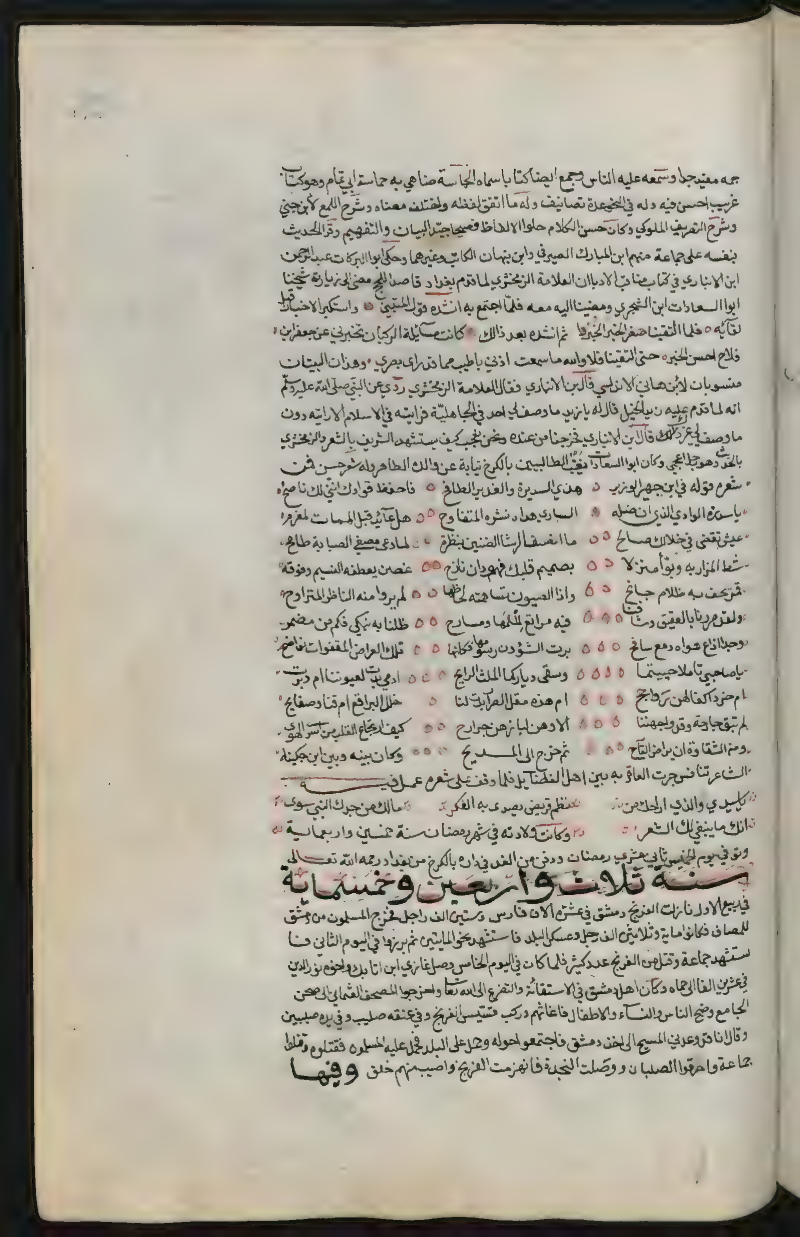 جمه مفيد جدا وسمعه عليه الناس وجمع ايضا كتابا سماه الحماسة ضاهى به حماسة ابي تمام وهو كتاب
غريب احسن فيه وله في النحو عدة تصانيف وله ما اتفق لفظه واختلف معناه وشرح اللمع لابن جني
وشرح التصريف الملوكي وكان حسن الكلام حلو الالفاظ فصيحا جيد البيان والتفهيم وقرا الحديث
بنفسه على جماعة منهم ابن المبارك الصيرفي وابن نبهان الكاتب وغيرهما وحكى ابو البركات عبد الرحمن
ابن الانباري في كتاب مناقب الادبا ان العلامة الزمخشري لما قدم بغداد قاصدا للحج مضى الى زيارة شيخنا
ابو السعادات ابن الشجري ومضينا اليه معه فلما اجتمع به انشده قول المتنبي واستكبر الاخبار قبل
لقائه فلما التقينا صغر الخبر الخبر ثم انشده بعد ذالك كانت مسائلة الركبان تخبرني عن جعفر ابن
فلاح احسن الخبر حتى التقينا فلا والله ما سمعت اذني باطيب مما قد راى بصري وهذان البيتان
منسوبان لابن هاني الاندلسي قال ابن الانباري فقال العلامة الزمخشري روي عن النبي صلى الله عليه وسلم
انه لما قدم عليه زيد الخيل قال له يا زيد ما وصف لي احد في الجاهلية فرايته في الاسلام الا رايته دون
ما وصف لي غيرك قال ابن الانباري فخرجنا من عنده ونحن نعجب كيف يستشهد الشريف بالشعر والزمخشري
بالحديث وهو رجل اعجمي وكان ابو السعادات نقيب الطالبيين بالكرخ نيابة عن والده الطاهر وله شعر حسن فمن
شعره قوله في ابن جهير الوزير هذي السديرة والغدير الطافح فاحفظ فوادك انني لك ناصح
يا سدرة الوادي الذي ان ضله الساري هداه نشره المتفاوح هل عائد قبل الممات لمغرم
عيش تقضى في ظلالك صالح ما انصف الرشا الضنين بنظرة لما دعى مصغي الصبابة طامح
شط المزار به وبوا منزلا بصميم قلبك فهو دان نازح غصن يعطفه النسيم وفوقه
قمر يحف به ظلام جانح واذا العيون تساهمته لحاظها لم يرو منه الناظر المتراوح
ولقد مررنا بالعقيق وشاقنا فيه مراتع للمها ومسارح ظلنا به نبكي فكم من مضمر
وجدا اذاع هواه دمع سافح برت الشؤون رسومها فكانما تلك العراص المقفرات نواضح
يا صاحبي تاملا حييتما وسقى دياركما الملث الرايح ادمى بدت لعيوننا ام ربرب
ام خرد اكفالهن رواجح ام هذه مقل الصوار رنت لنا خلل البراقع ام قنا وصفايح
لم تبق جارحة وقد واجهننا الا وهن لها بهن جوارح كيف ارتجاع القلب من اسر الهوى
ومن الشقاوة ان يراض القارح ثم خرج الى المديح وكان بينه وبين ابن جكينا
الشاعر تنافس جرت العادة به بين اهل الفضايل فلما وقف على شعره عمل فيه
يا سيدي والذي اراحك من نظم قريض يصدى به الفكر مالك من جدك النبي سوى
انك ما ينبغي لك الشعر وكانت ولادته في شهر رمضان سنة خمسين واربعماية
وتوفي يوم الخميس ثاني عشري رمضان ودفن من الغد في داره بالكرخ من بغداد رحمه الله تعالى
سنة ثلاث واربعين وخمسماية
في ربيع الاول نازلت الفرنج دمشق في عشرة الاف فارس وستين الف راجل فخرج المسلمون من دمشق
للمصاف فكانوا ماية وثلاثين الف رجل وعسكر البلد فاستشهد نحو المايتين ثم برزوا في اليوم الثاني فا
ستشهد جماعة وقتل من الفرنج عدد كثير فلما كان في اليوم الخامس وصل غازي ابن اتابك واخوه نور الدين
في عشرين الفا الى حماه وكان اهل دمشق في الاستغاثة والتضرع الى الله تعالى واخرجوا المصحف العثماني الى صحن
الجامع وضج الناس والنساء والاطفال فاغاثهم وركب قسيس الفرنج وفي عنقه صليب وفي يده صليبين
وقال انا قد وعدني المسيح الى اخذ دمشق فاجتمعوا حوله وحمل على البلد فحمل عليه المسلمون فقتلوه وقتلوا
جماعة واحرقوا الصلبان ووصلت النجدة فانهزمت الفرنج واصيب منهم خلق وفيها